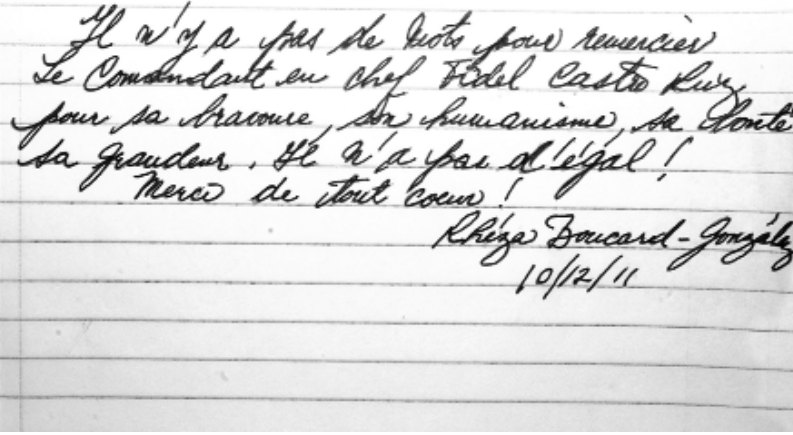 Il n'y a pas de mots pour remercier
Le Comandant en chef Fidel Castro Ruz
pour sa bravoure, son humanisme, sa bonté
sa grandeur. Il n'a pas d'égal!
Merci de tout coeur!
Rhéza Boucard-González
10/12/11